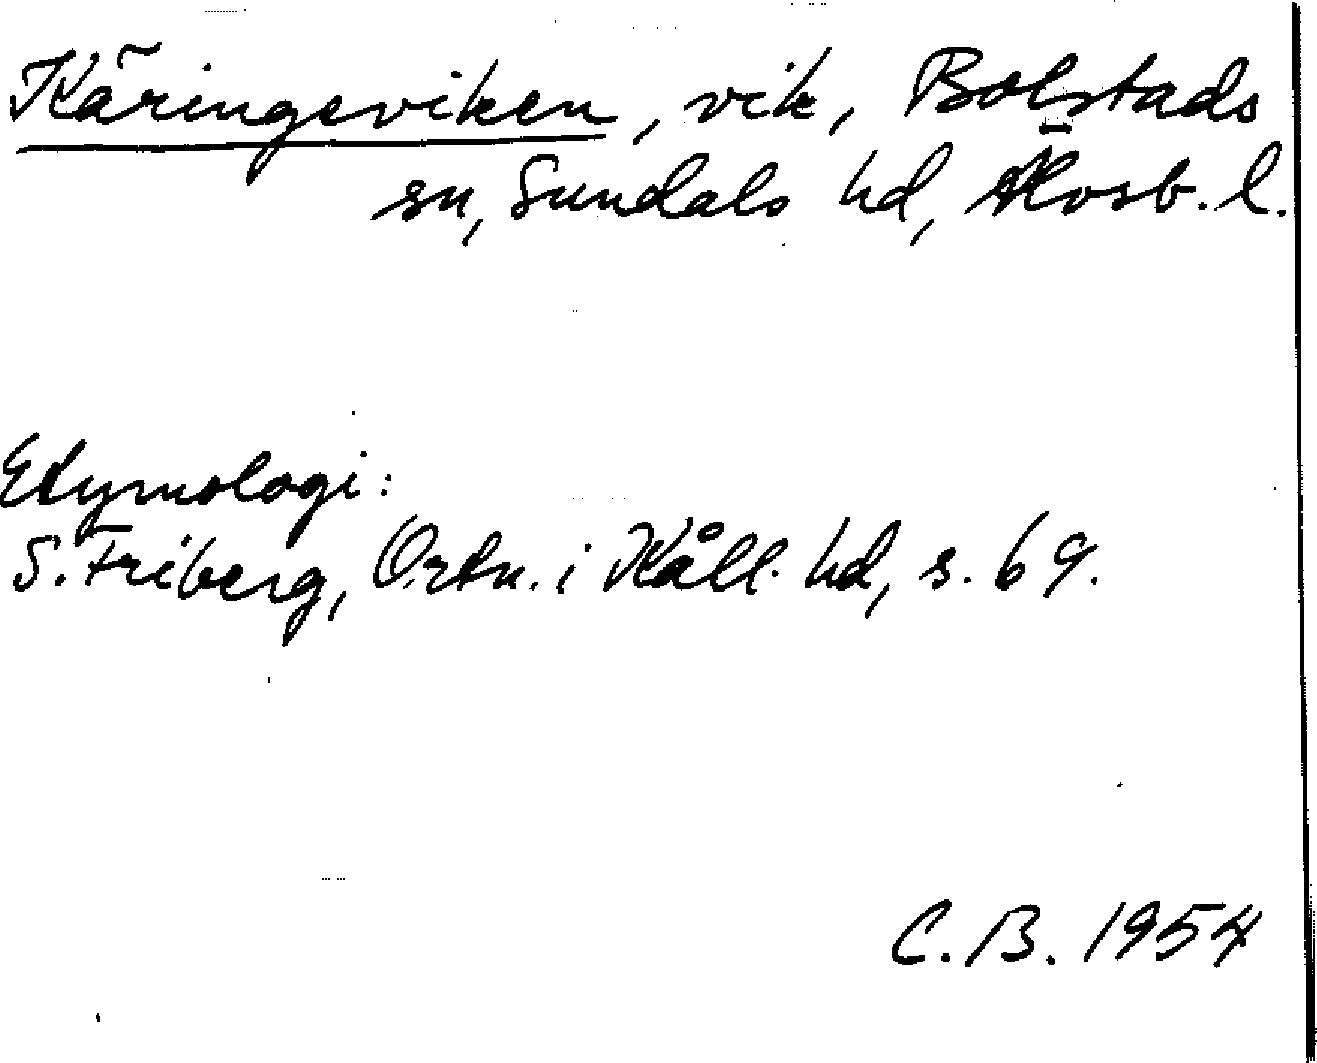 Käringeviken, vik, Bolstads
sn, Sundals hd, Älvsb. l.
Etymologi:
S. Friberg, Ortn. i Kåll. hd, s. 69.
C. B. 1954